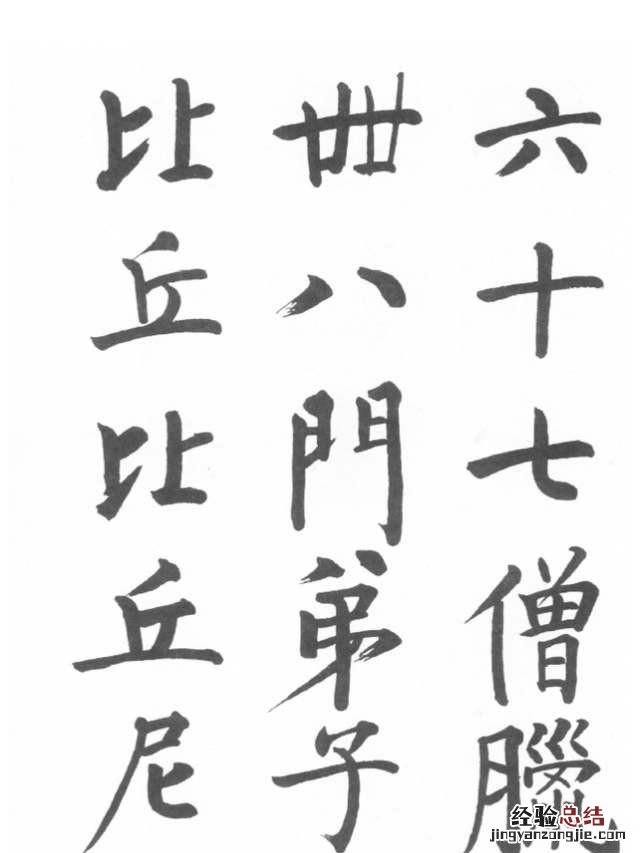 六十七僧臘
卌八門弟子
比丘比丘尼
经验总结
jingyanzongjie.com